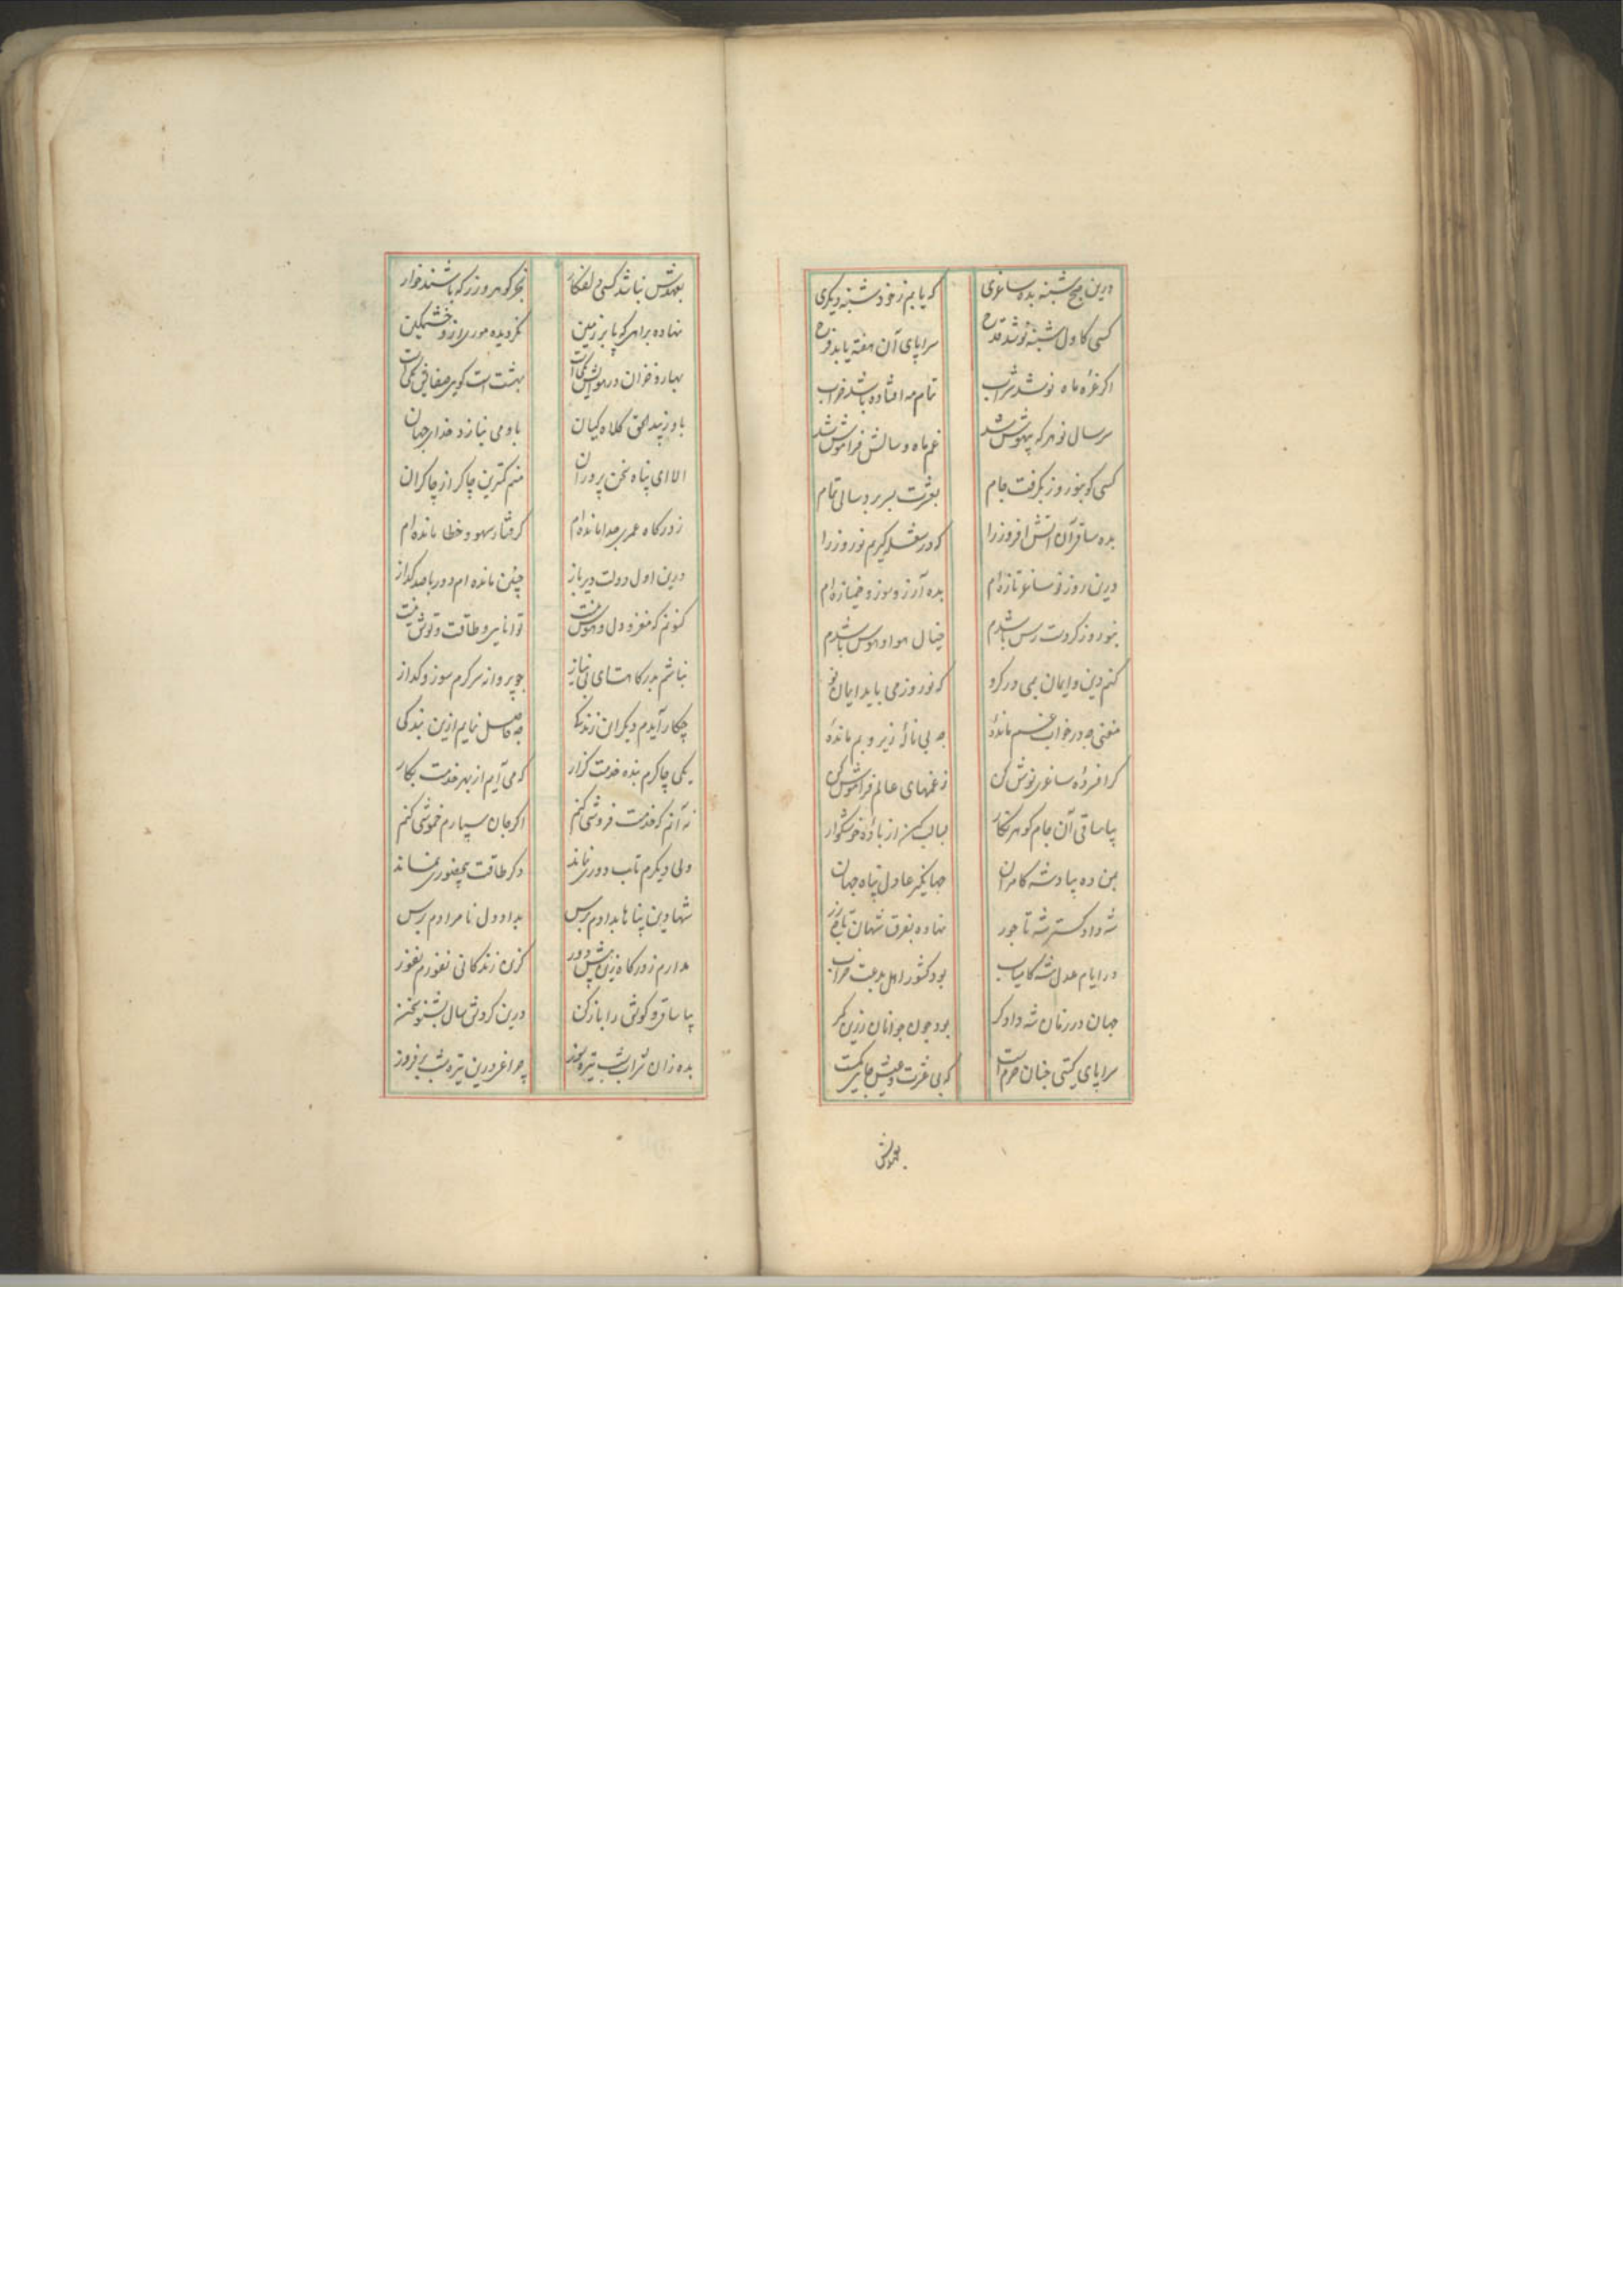 درین صبح شنبه بده ساغری که یابم ز خود شنبه دیگری
کسی کاول شنبه نوشد قدح سراپای آن هفته یابد فرح
اگر غره ماه نوشد شراب تمام مه افتاده باشد خراب
سر سال نو هر که بیهوش شد غم ماه و سالش فراموش شد
کسی کو بنوروز بگرفت جام بعشرت بسر برد سالی تمام
بده ساقی آن آتش افروز را که در بغل گیرم نوروز را
درین روز نو ساغر تازه‌ام بده آرزو سوز و خمیازه‌ام
بنوروز کر دست رس باشدم خیال هوا و هوس باشدم
کنم دین و ایمان بمی در کرو که نوروز می باید ایمان نو
مغنی چه در خواب غم مانده چه بی نالهٔ زیر و بم مانده
کر افسرده ساغری نوش کن ز غمهای عالم فراموش کن
بیا ساقی آن جام گوهر نگار لبالب کن از باده خوشگوار
بمن ده بیاد شه کامران جهانگیر عادل پناه جهان
شه دادگستر شه تاجور نهاده بفرق شهان تاج زر
در ایام عدل شه کامیاب بود کشور اهل بدعت خراب
جهان در زمان شه دادگر بود چون جوانان زرین کمر
سراپای گیتی چنان خرم است که بی عشرت و عیش جایی کمست
بعهدش
بعهدش نباشد کسی دلفکار بجز گوهر و زر که باشند خوار
نهاده براهی که پا بر زمین نگردیده موری ازو خشمگین
بهار و خزان در هوایش یکی است بهشت است گویی صفا فی یکی است
باو زیبد الحق کلاه کیان باو می نیازد خدای جهان
الا ای پناه سخن پروران منم کمترین چاکر از چاکران
ز درگاه عمری جدا مانده‌ام گرفتار سهو و خطا مانده‌ام
درین اول دولت دیرباز چنین مانده‌ام دور با صد گداز
کنونم که مغز و دل و هوش نیست توانایی و طاقت و توش نیست
نباشم بدرگاهت ای بی نیاز چو پروانه سرگرم سوز و گداز
چکار آیدم دیگر این زندگی چه حاصل نمایم ازین بندگی
یکی چاکرم بنده خدمت گزار که می آیم از بهر خدمت بکار
نه آنم که خدمت فروشی کنم اگر جان سپارم خموشی کنم
ولی دیگرم تاب دوری نماند دگر طاقت بیحضوری نماند
شها دین پناها بدادم برس بداد دل نامرادم برس
مدارم ز درگاه زین بیش دور کزین زندگانی نفورم نفور
بیا ساقی و گوش را باز کن درین گردش سال بشنو سخن
بده زان شراب شب تیره سوز چراغی درین تیره شب برفروز